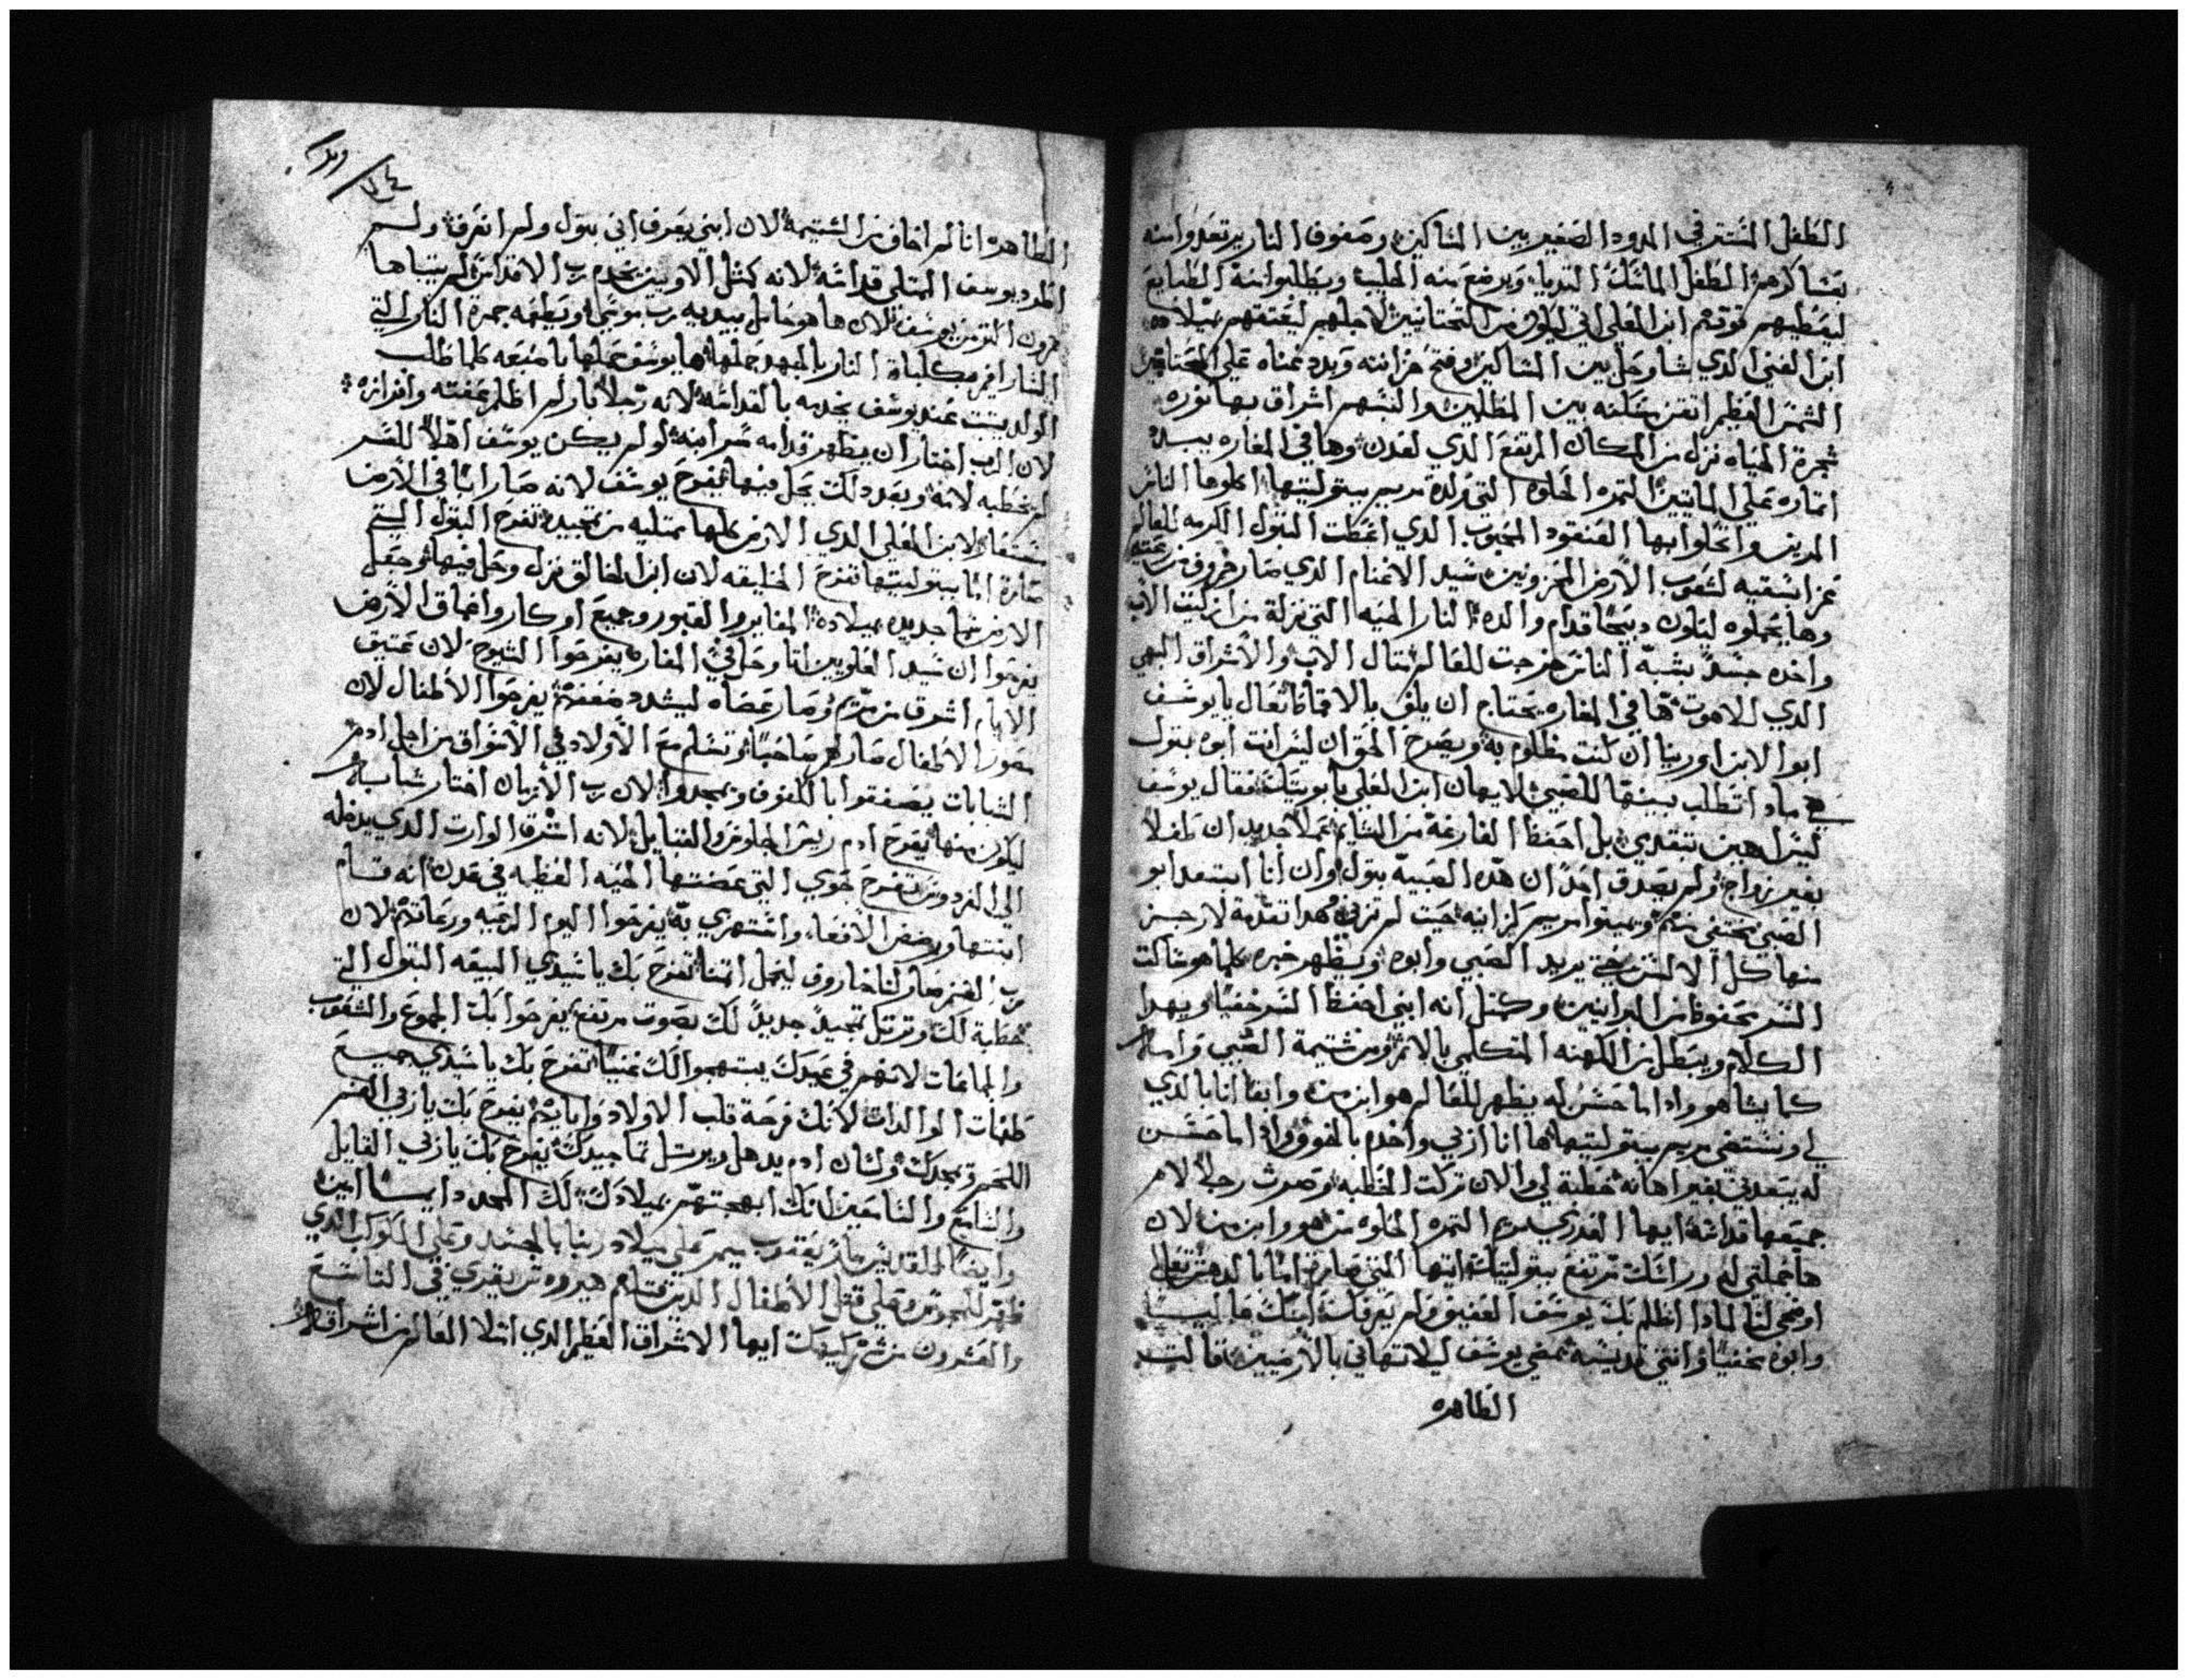 الطفل المستتر في المدود الصغير بين المساكين وصفوف النار يرتعدوا منه
الطفل الماسك التديا ويرضع منه الحليب ويطلبوا منه الطبايع
ليعطيهم قوتهم ابن العلي اتي ليكون من التحتانيين لاجلهم ليعتقهم بميلاده
ابن الغني الذي شا وحل بين المساكين وفتح خزانته وبدد غناه علي المحتاجين
الشمس العظيم اتقن سكنه بين المظلمين والبسهم اشراق بها نوره
شجرة الحياه نزل من المكان المرتفع الذي لعدن وها في المغاره يبسط
اتماره علي المايتين التمره الحلوه التي ولدة مريم ببتوليتها اكلوها الناس
المرين واتحلوا بها العنقود المحبوب الذي اعطت البتول الكرمه للعالم
عزا تسقيه لشعوب الارض المحزونين سيد الاغنام الذي صار خروف من رعيته
وها يحملوه ليكون دبيحا قدام والده النار الحيه التي نزلة من الاب
واخده جسد بشبه الناس خرجت للعالم تتال الاب والاشراق البهي
الذي للاهوت ها في المغاره يحتاج ان يلف بالاقماط تعال يا يوسف
ابوا الابن اورينا ان كنت مظلوم به ويصرخ الحق ان ليس انت ابوه بتول
هي مادا تطلب بينها للصبي لا يهان ابن العلي بابويتك فقال يوسف
ليس اهين بل احفظ الفارغة من الشايم عملا جديد ان طفلا
بغير زواج ولم يصدق احد ان هده الصبيه بتول وان انا ابتعد ابو
الصبي يختفي منهم مريم كزانيه حيت لم تزني هدا تقدمة لارجز
منها كل الالسن حتي يريد الصبي وابوه ويظهر خبره كلما هو ساكت
السر محفوظ من البرانيين وكمتل انه ابني احفظ السر خفيا وبهدا
الكلام ويبطل من الكهنه المتكلمي بالاتم ومن شتيمة الصبي وامه
كما يشا هو وادا ما حسن له يظهر للعالم هو ابن من وايضا انا بالدي
لي وتستضي مريم ببتوليتها ها انا اربي واخدم بالخوف وادا ما حسن
له يبعدني بغير اهانه خطبة لي والان تركت الخطبه وصرت رجلا لام
جميعها قداسة ايها العدري مريم التمره الحلوه من هو وابن من لان
ها حملتي له وراسك مرتفع ببتوليتك ايتها التي صارة اما بالدهش تعالي
اوضحي لنا لمادا انظلم بك يوسف العفيف ولم يعرفك ابنك ما ليس
وابوه مخفيا وانتي قديسه تمضي يوسف ليلا تتهاني بالارضيين قالت
الطاهره
الطاهره انا لم اخاف من الشتيمه لان ابني يعرف اني بتول ولم انعرف ولم
اطرد يوسف الممتلي قداسة لانه كمتل الاويين يخدم رب الاقداس لم يتباها
هرون اكتر من يوسف لان ها هو حامل بيديه رب موسي ويطعمه جمرة النار التي
النار اخر بكلباة النار بالجهد حملها ها يوسف عملها بامنيعه كلما طلب
الولد يتبت عند يوسف يخدمه بالقداسه لانه رجلا بار لم اظلم عفته وافرازه
لان الرب اختار ان يظهر قدامه سر ابنه لو لم يكن يوسف اهلا للسر
لم يخطبه لامه وبعد دلك يحل فيها يفرح يوسف لانه صار ابا في الارض
مستعار لابن العلي الذي الارض كلها ممتليه من تمجيده تفرح البتول التي
صارة اما ببتوليتها تفرح الخليقه لان ابن الخالق نزل وحل فيها وجعل
الارض سما جديده بميلاده المغاير والقبور وجميع اوكار واعماق الارض
يفرحوا ان سيد العلويين اتا وحل في المغاره يفرحوا الشيوخ لان عتيق
الايام اشرق من مريم وصار عصاه ليشدد ضعفهم يفرحوا الاطفال لان
مصور الاطفال صار لهم صاحبا وتسلم مع الاولاد في الاسواق من اجل ادم
الشابات يصفقوا بالكفوف ويمجدوا لان رب الازمان اختار شابه
ليكون منها يفرح ادم ريس الجلوس والقبايل لانه اشرق الوارت الذي يدخله
الي الفردوس تفرح حوي التي عضتها الحيه العظيمه في عدن انه قام
ابنتها ورضض الافعا واستهزي به يفرحوا اليوم الرعيه ورعاتهم لان
رب الغنم صار لنا خاروف ليحمل اتمنا تفرح بك يا سيدي البيعه البتول التي
خطبة لك وترتل تمجيد جديد لك بصوت مرتفع يفرحوا بك الجموع والشعوب
والجماعات لانهم في عيدك يبتهجوا لك غنيا تفرح بك يا سيدي جميع
طغمات الوالدات لانك فرحة قلب الاولاد وابايهم يفرح بك يا ربي الفم
اللحم ويمجدك ولسان ادم يدهل ويرتل تماجيدك يفرح بك يا ربي القايل
والسامع والسامعين انك ابهجتهم بميلادك لك المجد دايما امين
وايضا للقديس مار يعقوب ميمر علي ميلاد ربنا بالجسد وعلي الكوكب الذي
ظهر للمجوس وعلي قتل الاطفال الدين قتلهم هيرودس يقري في التاسع
والعشرون من شهر كيهك ايها الاشراق العظيم الذي امتلا العالم من اشراقك